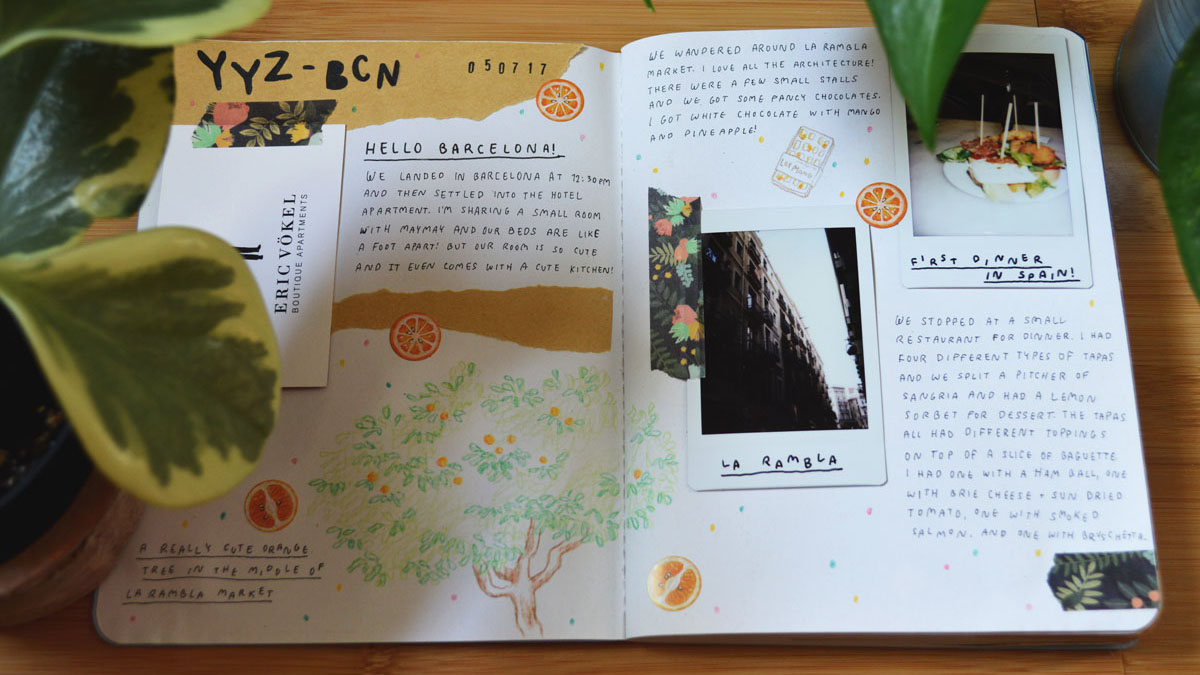 YYZ-BCN
050717
HELLO BARCELONA!
WE LANDED IN BARCELONA AT 12:30PM
AND THEN SETTLED INTO THE HOTEL
APARTMENT. I'M SHARING A SMALL ROOM
WITH MAYMAY AND OUR BEDS ARE LIKE
A FOOT APART! BUT OUR ROOM IS SO CUTE
AND IT EVEN COMES WITH A CUTE KITCHEN!
ERIC VÖKEL
BOUTIQUE APARTMENTS
A REALLY CUTE ORANGE
TREE IN THE MIDDLE OF
LA RAMBLA MARKET
WE WANDERED AROUND LA RAMBLA
MARKET. I LOVE ALL THE ARCHITECTURE!
THERE WERE A FEW SMALL STALLS
AND WE GOT SOME FANCY CHOCOLATES.
I GOT WHITE CHOCOLATE WITH MANGO
AND PINEAPPLE!
LA RAMBLA
FIRST DINNER
IN SPAIN!
WE STOPPED AT A SMALL
RESTAURANT FOR DINNER. I HAD
FOUR DIFFERENT TYPES OF TAPAS
AND WE SPLIT A PITCHER OF
SANGRIA AND HAD A LEMON
SORBET FOR DESSERT. THE TAPAS
ALL HAD DIFFERENT TOPPINGS
ON TOP OF A SLICE OF BAGUETTE
I HAD ONE WITH A HAM BALL, ONE
WITH BRIE CHEESE + SUN DRIED
TOMATO, ONE WITH SMOKED
SALMON. AND ONE WITH BRUSCHETTA.